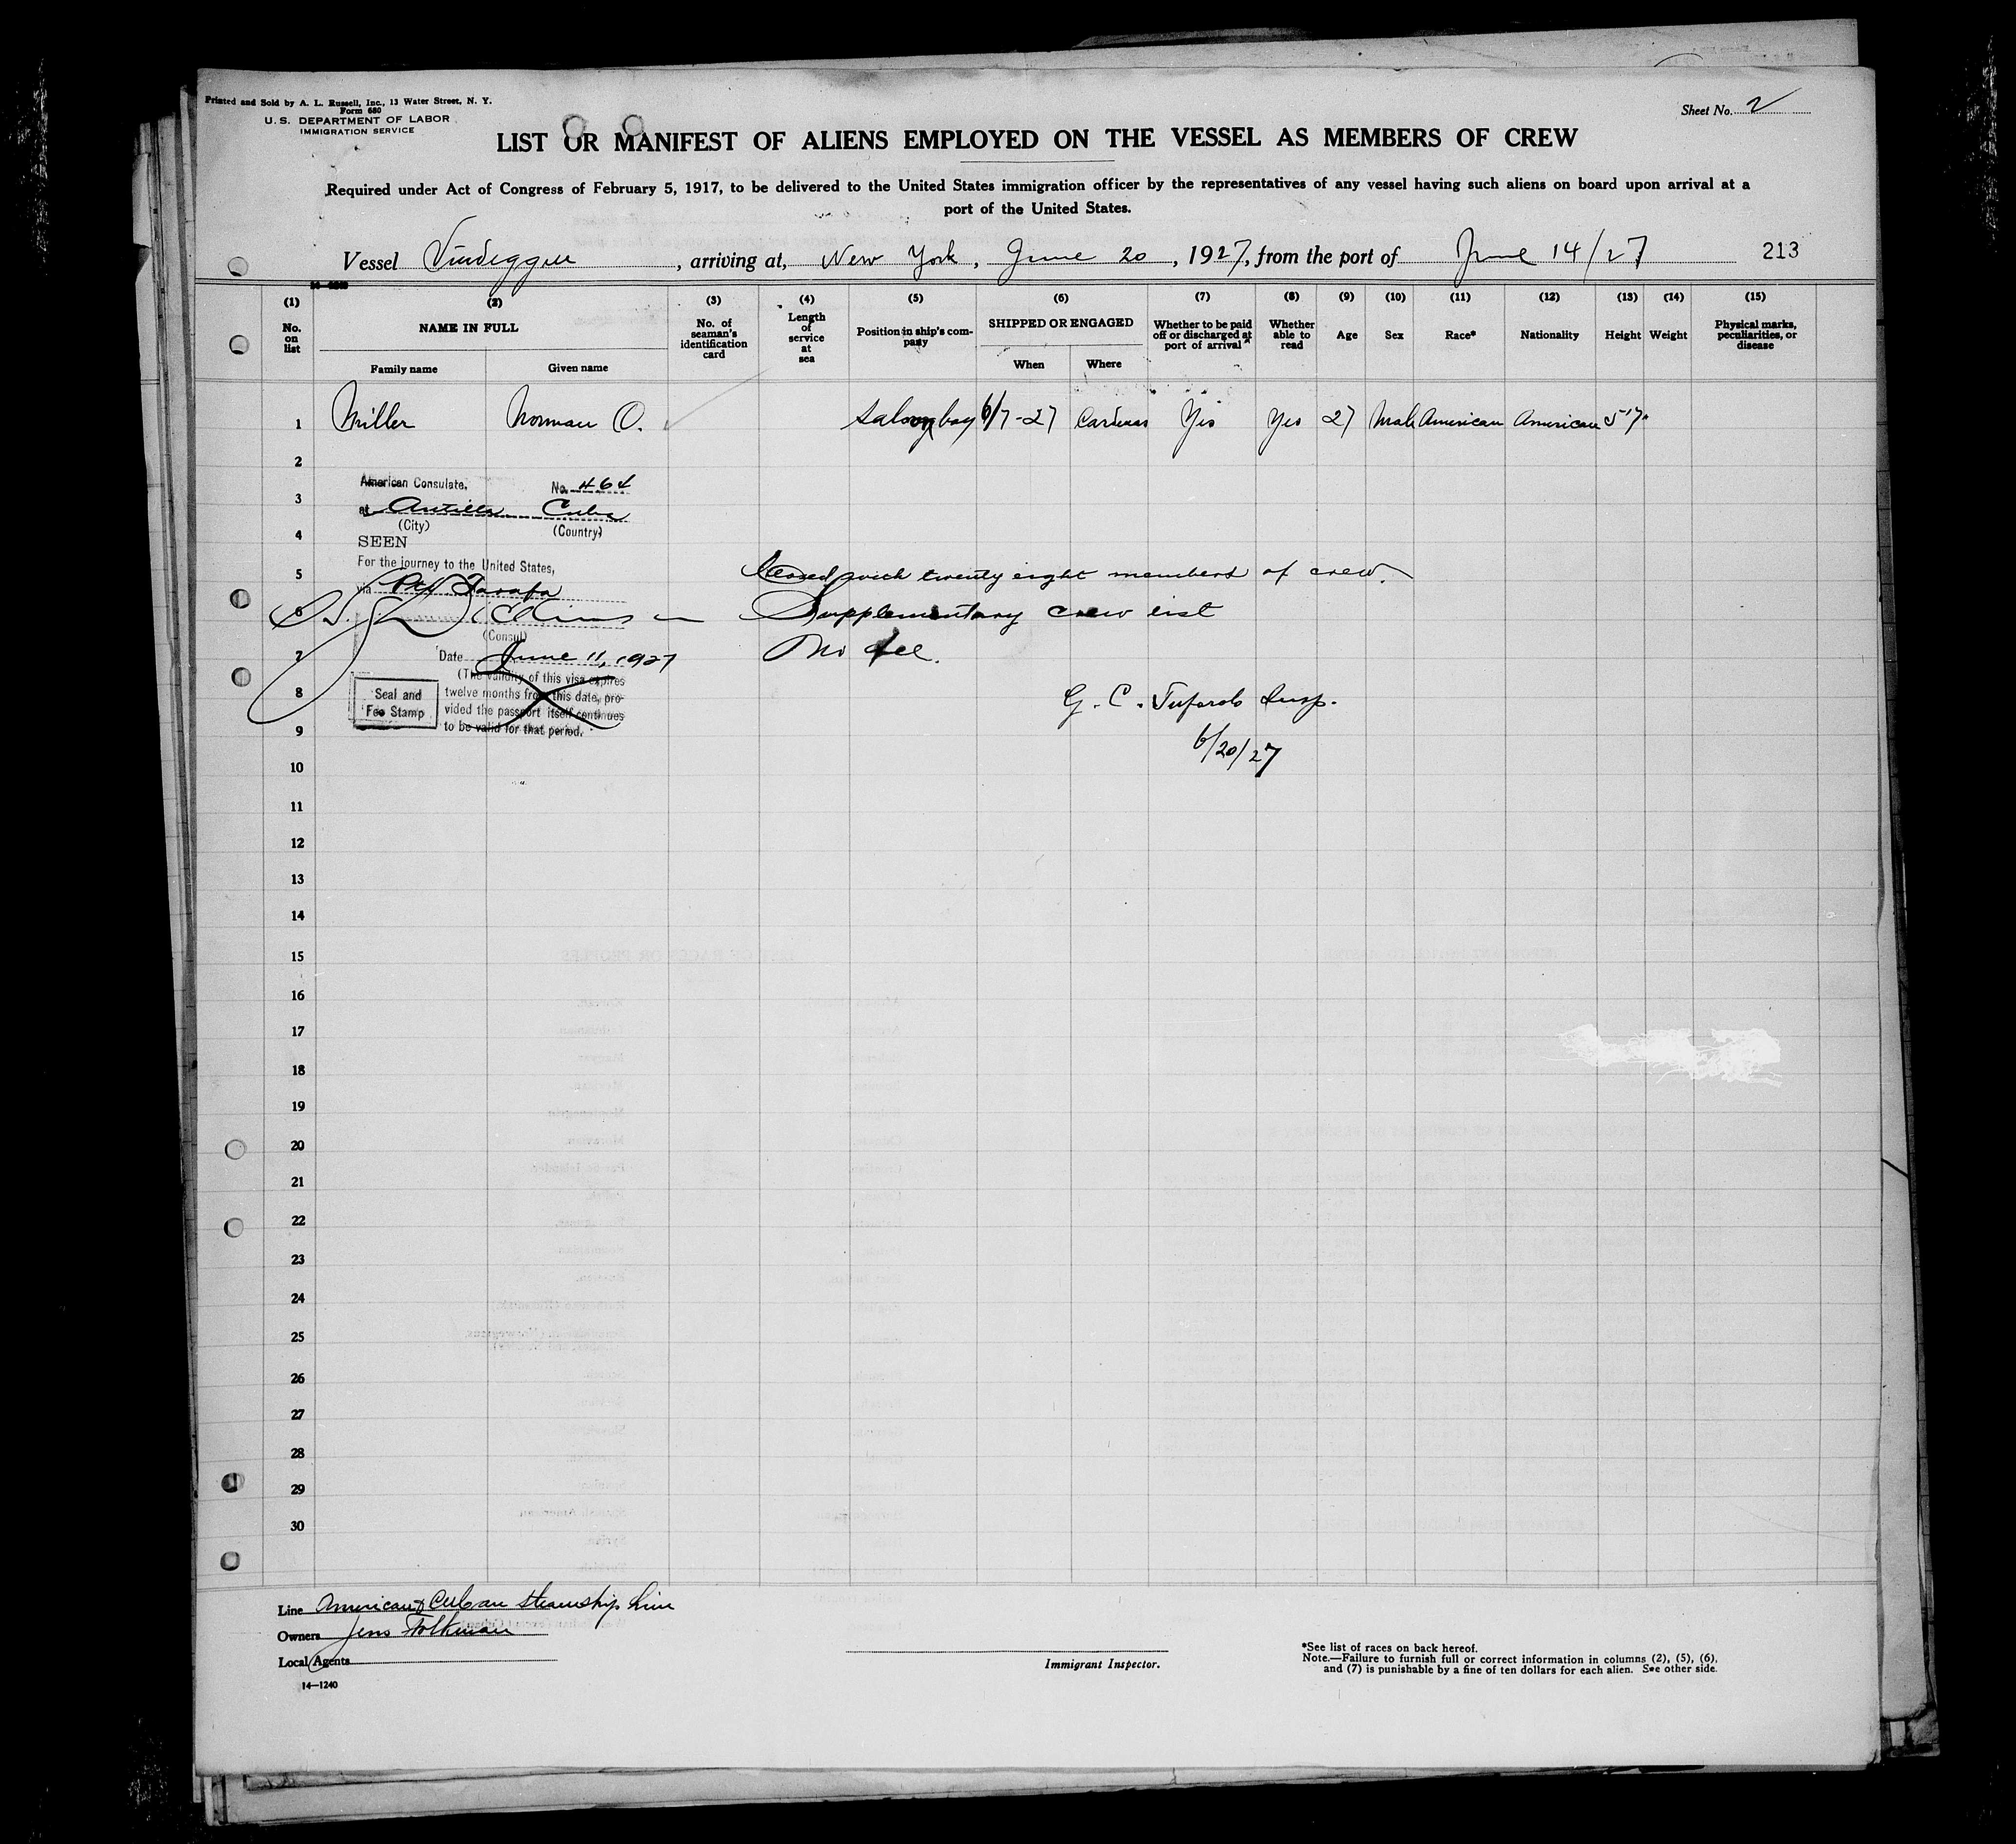 Printed and Sold by A. L. Russell, Inc., 13 Water Street, N. Y.
Form 680
U. S. DEPARTMENT OF LABOR
IMMIGRATION SERVICE
Sheet No. 2
LIST OR MANIFEST OF ALIENS EMPLOYED ON THE VESSEL AS MEMBERS OF CREW
Required under Act of Congress of February 5, 1917, to be delivered to the United States immigration officer by the representatives of any vessel having such aliens on board upon arrival at a
port of the United States.
Vessel Vindeggen, arriving at, New York, June 20, 1927, from the port of June 14/27 213
(1) (2) (3) (4) (5) (6) (7) (8) (9) (10) (11) (12) (13) (14) (15)
No. on list
NAME IN FULL
Family name
Given name
No. of seaman's identification card
Length of service at sea
Position in ship's company
SHIPPED OR ENGAGED
When
Where
Whether to be paid off or discharged at port of arrival
Whether able to read
Age
Sex
Race*
Nationality
Height
Weight
Physical marks, peculiarities, or disease
1 Miller Norman O. Saloonboy 6/7-27 Cardenas Yes Yes 27 Male American American 5'7"
2
American Consulate, No. 464
3
at Antilla Cuba
(City) (Country)
4
SEEN
For the journey to the United States,
5
Closed with twenty eight members of crew.
via Pto Tarafa
6
Supplementary crew list
(Consul)
7
Date June 11, 1927
No fee.
(The validity of this visa expires
8
twelve months from this date, provided the passport itself continues
to be valid for that period.
Seal and
Fee Stamp
G. C. Insp.
9
6/20/27
10
11
12
13
14
15
16
17
18
19
20
21
22
23
24
25
26
27
28
29
30
Line American & Cuban Steamship Line
Owners Jens Folkman
Local Agents
14—1240
Immigrant Inspector.
*See list of races on back hereof.
Note.—Failure to furnish full or correct information in columns (2), (5), (6),
and (7) is punishable by a fine of ten dollars for each alien. See other side.